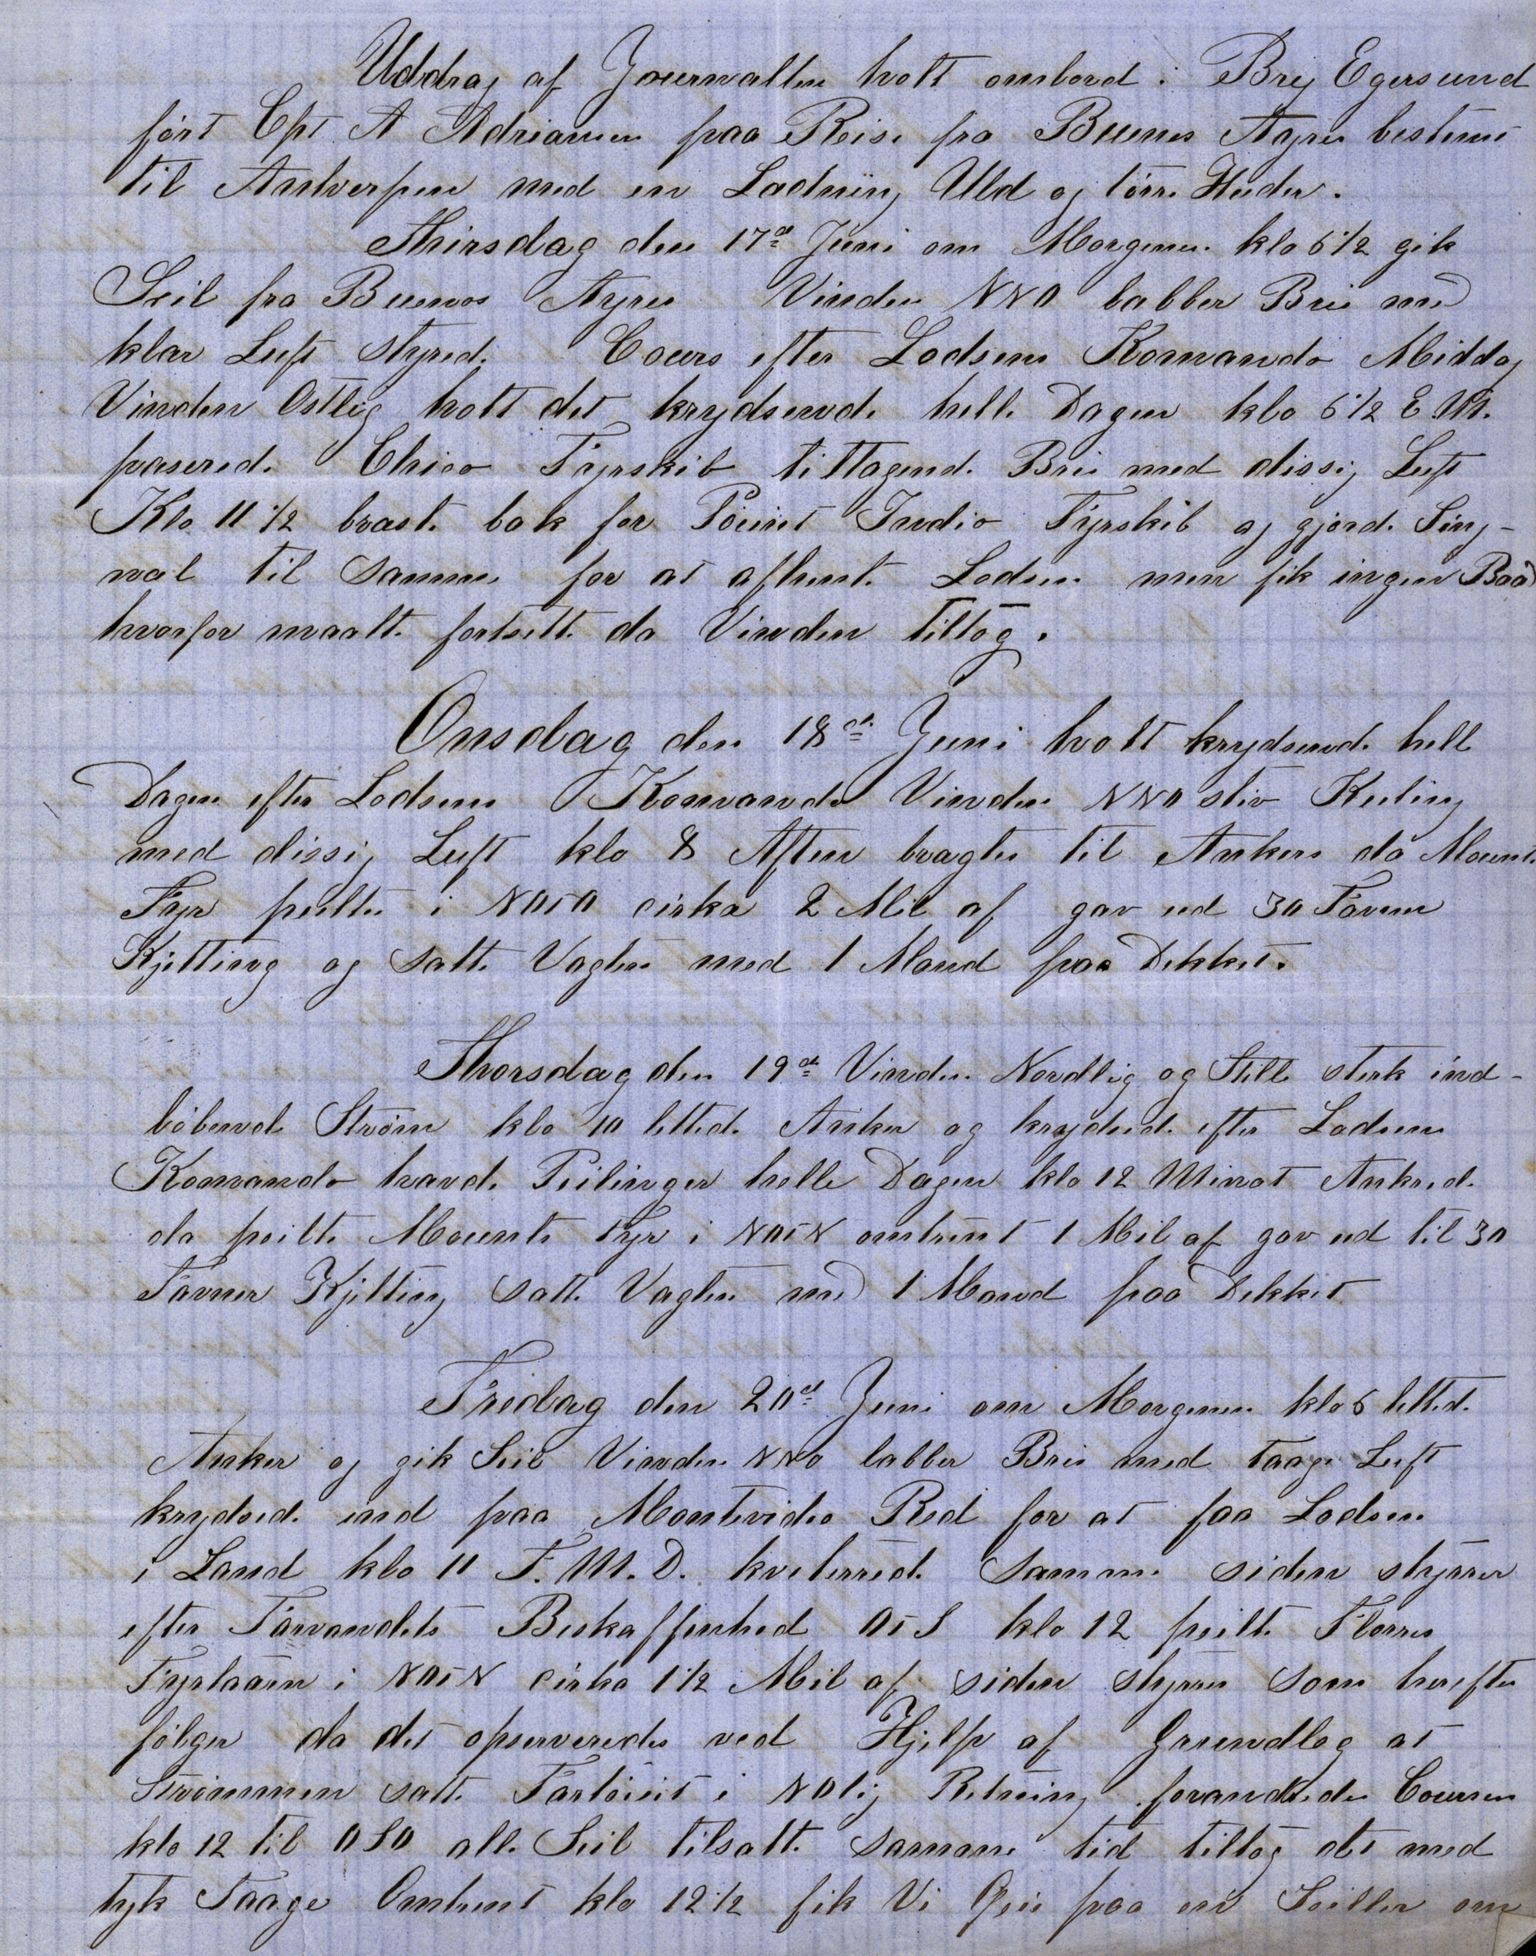 Uddrag af Jouurnallen holt ombord i Brig Egersund
ført Cpt A Adriansen paa Reise fra Buenos Ayres bestemt
til Antverpen med en Ladning Uld og tørre Huder.
Thirsdag den 17d Juni om Morgenen klo 6 1/2 gik
Seil fra Buenos Ayres Vinden NNO labber Bris med
klar Luft styrede Cours efter Lodsens Komando Middag
Vinden Østlig holt det krydsende helle Dagen klo 6 1/2 E M.
paserede Chico Fyrskib tiltagende Bris med dissig Luft
Klo 11 1/2 braste bak for Point Indio Fyrskib og gjorde Sing-
nal til samme for at afhente Lodsen men fik ingen Baad
hvorfor maatte fortsette da Vinden tiltog.
Onsdag den 18d Juni holt krydsende hele
Dagen efter Lodsens Komando Vinden NNO stiv Kuling
med dissig Luft klo 8 Aften bragtes til Ankers da Mounte
Fyr peiltes i NOtO cirka 2 Mil af gav ud 30 Favner
Kjetting og satte Vagten med 1 Mand paa Dekket.
Thorsdag den 19d Vinden Nordlig og Stille sterk ind-
løbende Strøm klo 10 lettede Anker og krydsede efter Lodsens
Komando havde Peilinger helle Dagen klo 12 Minat Ankrede
da peilte Mounte Fyr i NOtN omtrent 1 Mil af gav ud til 30
Favner Kjetting satte Vagten med 1 Mand paa Dekket
Fredag den 20d Juni om Morgenen klo 6 lettede
Anker og gik Seil Vinden NNO labber Bris med Taage Luft
krydsede ind paa Montevideo Red for at faa Lodsen
i Land klo 11 F. M. D. kviterrede samme siden styrer
efter Farvandets Beskaffenhed OtS klo 12 peilte Florres
Fyrtaarn i NOtN cirka 1 1/2 Mil af siden styrer som herefter
følger da det opserveredes ved Hjelp af Grundlog at
Strømmen satte Fartøiet i NOlig Retning forandredes Coursen
klo 12 til OSO alle Seil tilsatte samme tid tiltog det med
tyk Taage Omtrent klo 12 1/2 fik Vi Øie paa en Seiller om